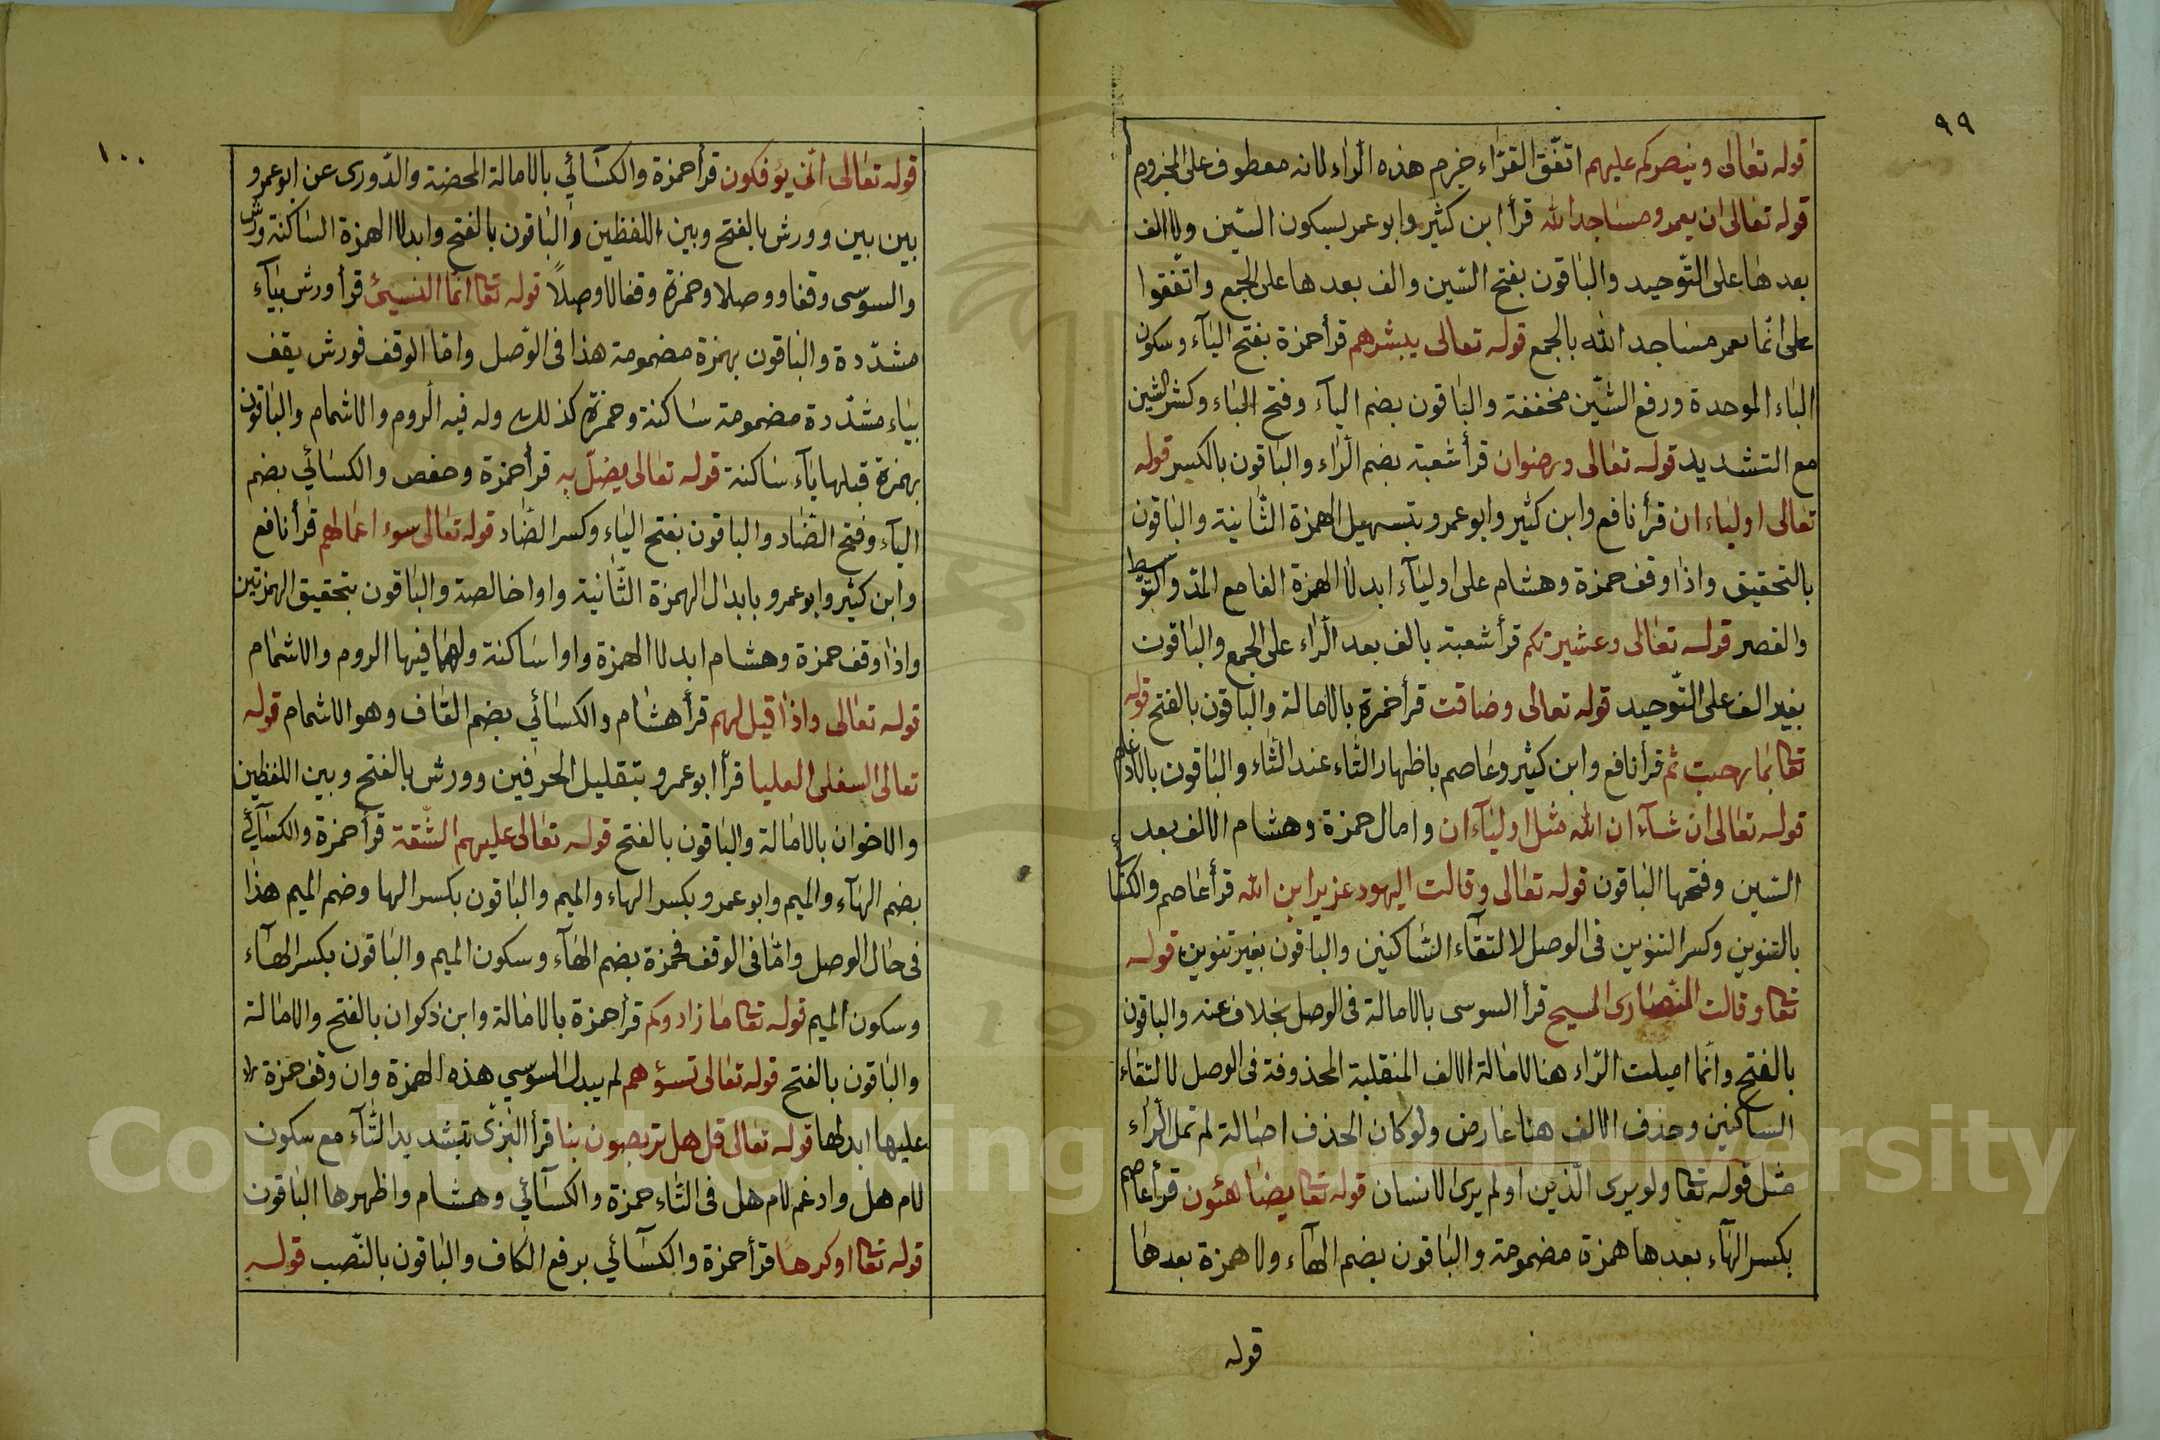 ٩٩
قوله تعالى وينصركم عليهم اتفق القراء جزم هذه الراء لانه معطوف على المجزوم
قوله تعالى ان يعمروا مساجد الله قرأ ابن كثير وابو عمر بسكون السين ولا الف
بعدها على التوحيد والباقون بفتح السين والف بعدها على الجمع واتفقوا
على انما يعمر مساجد الله بالجمع قوله تعالى يبشرهم قرأ حمزة بفتح الياء وسكون
الباء الموحدة ورفع الشين مخففة والباقون بضم الياء وفتح الباء وكسر الشين
مع التشديد قوله تعالى ورضوان قرأ شعبة بضم الراء والباقون بالكسر قوله
تعالى اولياء ان قرأ نافع وابن كثير وابو عمرو بتسهيل الهمزة الثانية والباقون
بالتحقيق واذا وقف حمزة وهشام على اولياء ابدلا الهمزة الفا مع المد والتوسط
والقصر قوله تعالى وعشيرتكم قرأ شعبة بالف بعد الراء على الجمع والباقون
بغير الف على التوحيد قوله تعالى وضاقت قرأ حمزة بالامالة والباقون بالفتح قوله
تعا بما رحبت ثم قرأ نافع وابن كثير وعاصم باظهار التاء عند الثاء والباقون بالادغام
قوله تعالى ان شاء ان الله مثل اولياء ان وامال حمزة وهشام الالف بعد
الشين وفتحها الباقون قوله تعالى وقالت اليهود عزير ابن الله قرأ عاصم والكسا
بالتنوين وكسر التنوين فى الوصل لالتقاء الساكنين والباقون بغير تنوين قوله
تعا وقالت النصارى المسيح قرأ السوسى بالامالة فى الوصل بخلاف عنه والباقون
بالفتح وانما اميلت الراء هنا لامالة الالف المنقلبة المحذوفة فى الوصل لالتقاء
الساكنين وحذف الالف هنا عارض ولو كان الحذف اصالة لم تمل الراء
مثل قوله تعا ولو يرى الذين اولم ير الانسان قوله تعا يضاهئون قرأ عاصم
بكسر الهاء بعدها همزة مضمومة والباقون بضم الهاء ولا همزة بعدها
قوله
١٠٠
قوله تعالى انى يؤفكون قرأ حمزة والكسائي بالامالة المحضة والدورى عن ابو عمرو
بين بين وورش بالفتح وبين اللفظين والباقون بالفتح وابدلا الهمزة الساكنة ورش
والسوسى وقفا ووصلا وحمزة وقفا لا وصلا قوله تعا انما النسيئ قرأ ورش بياء
مشددة والباقون بهمزة مضمومة هذا فى الوصل واما الوقف فورش يقف
بياء مشددة مضمومة ساكنة وحمزة كذلك وله فيه الروم والاشمام والباقون
بهمزة قبلها ياء ساكنة قوله تعالى يضل به قرأ حمزة وحفص والكسائي بضم
الياء وفتح الضاد والباقون بفتح الياء وكسر الضاد قوله تعالى سوء اعمالهم قرأ نافع
وابن كثير وابو عمرو بابدال الهمزة الثانية واوا خالصة والباقون بتحقيق الهمزتين
واذا وقف حمزة وهشام ابدلا الهمزة واوا ساكنة ولهما فيها الروم والاشمام
قوله تعالى واذا قيل لهم قرأ هشام والكسائي بضم القاف وهو الاشمام قوله
تعالى السفلى العليا قرأ ابو عمرو بتقليل الحرفين وورش بالفتح وبين اللفظين
والاخوان بالامالة والباقون بالفتح قوله تعالى عليهم الشقة قرأ حمزة والكسائي
بضم الهاء والميم وابو عمرو بكسر الهاء والميم والباقون بكسر الها وضم الميم هذا
فى حال الوصل واما فى الوقف فحمزة بضم الهاء وسكون الميم والباقون بكسر الهاء
وسكون الميم قوله تعا ما زادوكم قرأ حمزة بالامالة وابن ذكوان بالفتح والامالة
والباقون بالفتح قوله تعالى تسؤهم لم يبدل السوسي هذه الهمزة وان وقف حمزة
عليها ابدلها قوله تعالى قل هل تربصون بنا قرأ البزى بتشديد التاء مع سكون
لام هل وادغم لام هل فى التاء حمزة والكسائي وهشام واظهرها الباقون
قوله تعا اوكرها قرأ حمزة والكسائي برفع الكاف والباقون بالنصب قوله
Copyright © King Saud University